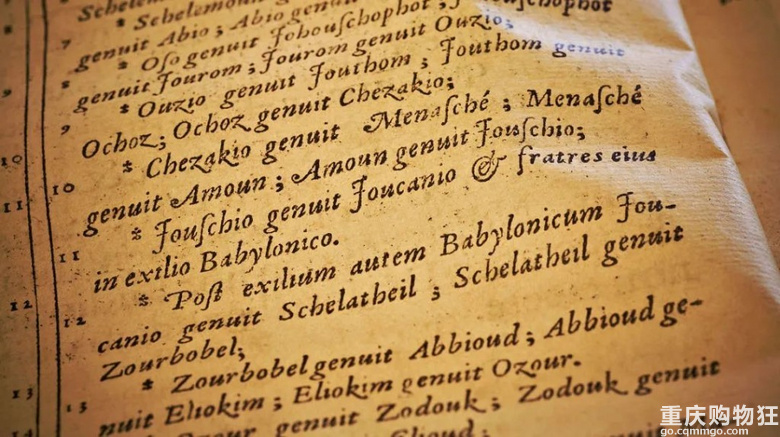 Schelemouni
7 genuit Abio; Abio genuit
8 * Oſo genuit Jehouſchophot; Jehouſchophot
genuit Jourom; Jourom genuit Ouzio;
9 9 * Ouzio genuit Jouthom; Jouthom genuit
Ochoz; Ochoz genuit Chezakio;
10 10 * Chezakio genuit Menaſché; Menaſché
genuit Amoun; Amoun genuit Jouſchio;
11 11 * Jouſchio genuit Joucanio & fratres eius
in exilio Babylonico.
12 12 * Poſt exilium autem Babylonicum Jou-
canio genuit Schelatheil; Schelatheil genuit
Zourbobel;
13 13 * Zourbobel genuit Abbioud; Abbioud ge-
nuit Eliokim; Eliokim genuit Ozour.
14 * Ozour genuit Zodouk; Zodouk genuit
重庆购物狂
go.cqmmgo.com